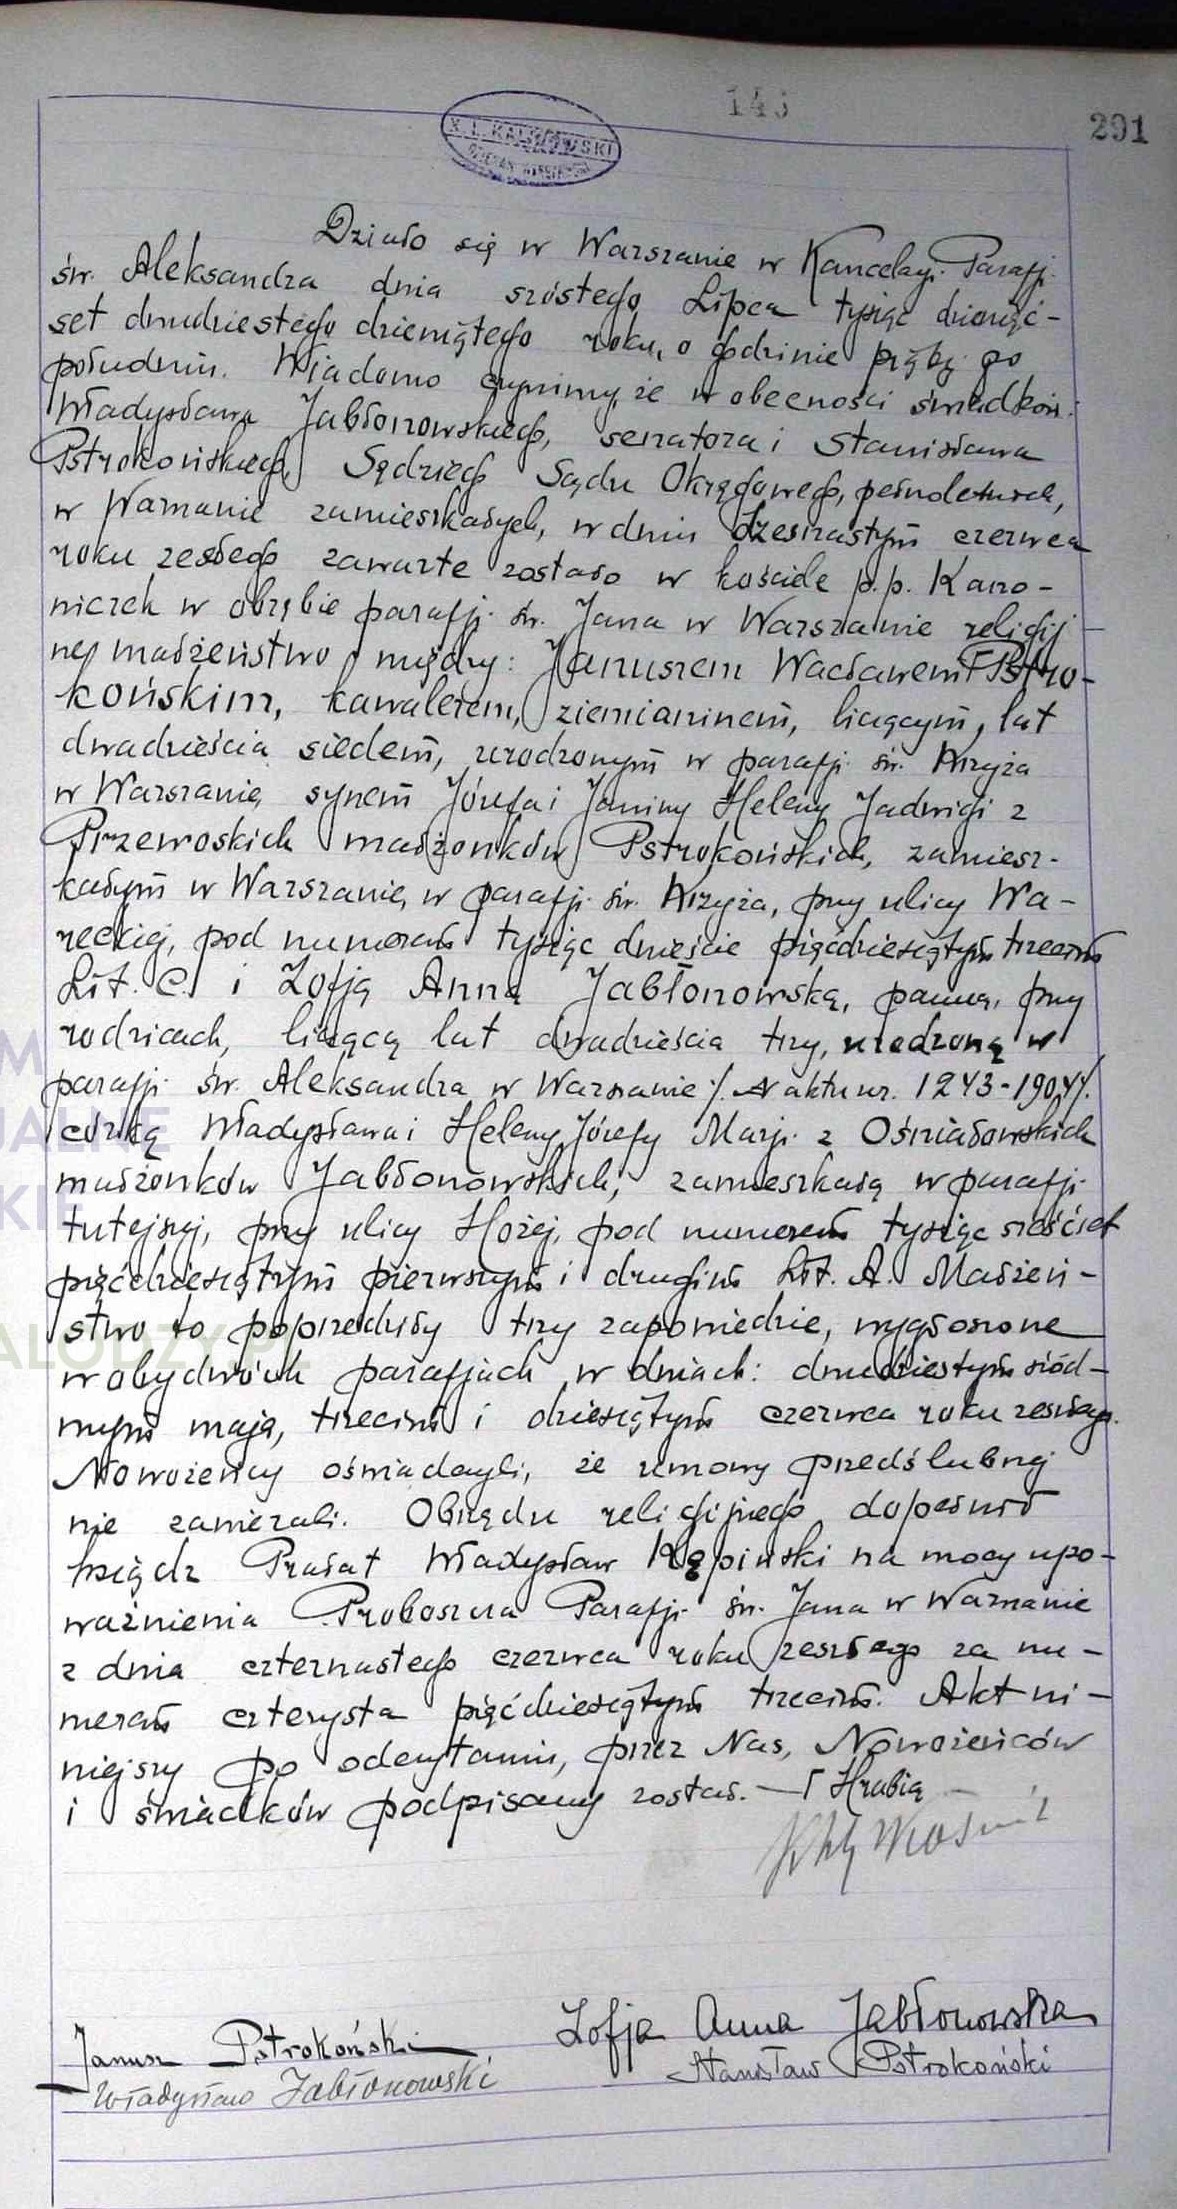 143
291
X. L. KALINOWSKI
Działo się w Warszawie w Kancelarji Parafji
św. Aleksandra dnia szóstego Lipca tysiąc dziewięć-
set dwudziestego dziewiątego roku, o godzinie piątej po
południu. Wiadomo czynimy, że w obecności świadków:
Władysława Jabłonowskiego, senatora i Stanisława
Pstrokońskiego, Sędziego Sądu Okręgowego, pełnoletnich,
w Warszawie zamieszkałych, w dniu czerwca
roku zeszłego zawarte zostało w kościele p.p. Kano-
niczek w obrębie parafji św. Jana w Warszawie religij
ne małżeństwo między: Januszem Wacławem Γ Pstro-
końskim, kawalerem, ziemianinem, liczącym lat
dwadzieścia siedem, urodzonym w parafji św. Krzyża
w Warszawie, synem Józefa i Janiny Heleny Jadwigi z
Przewoskich małżonków Pstrokońskich, zamiesz-
kałym w Warszawie, w parafji św. Krzyża, przy ulicy Wa-
reckiej, pod numerem tysiąc dwieście pięćdziesiątym trzecim
Lit. C. i Zofją Anną Jabłonowską, panną, przy
rodzicach, liczącą lat dwadzieścia trzy, urodzoną w
parafji św. Aleksandra w Warszawie /. N aktu nr. 1243-1904/.
córką Władysława i Heleny Józefy Marji z Ośniałowskich
małżonków Jabłonowskich, zamieszkałą w parafji
tutejszej, przy ulicy Hożej, pod numerem tysiąc sześćset
pięćdziesiątym pierwszym i drugim Lit. A. Małżeń-
stwo to poprzedziły trzy zapowiedzie, wygłoszone
w obydwóch parafjach w dniach: dwudziestym siód-
mym maja, trzecim i dziesiątym czerwca roku zeszłego.
Nowożeńcy oświadczyli, że umowy przedślubnej
nie zawierali. Obrzędu religijnego dopełnił
ksiądz Prałat Władysław Kępiński na mocy upo-
ważnienia Proboszcza Parafji św. Jana w Warszawie
z dnia czternastego czerwca roku zeszłego za nu-
merem czterysta pięćdziesiątym trzecim. Akt ni-
niejszy po odczytaniu, przez Nas, Nowożeńców
i świadków podpisany został. — Γ Hrabią
Janusz Pstrokoński
Zofja Anna Jabłonowska
Władysław Jabłonowski
Stanisław Pstrokoński